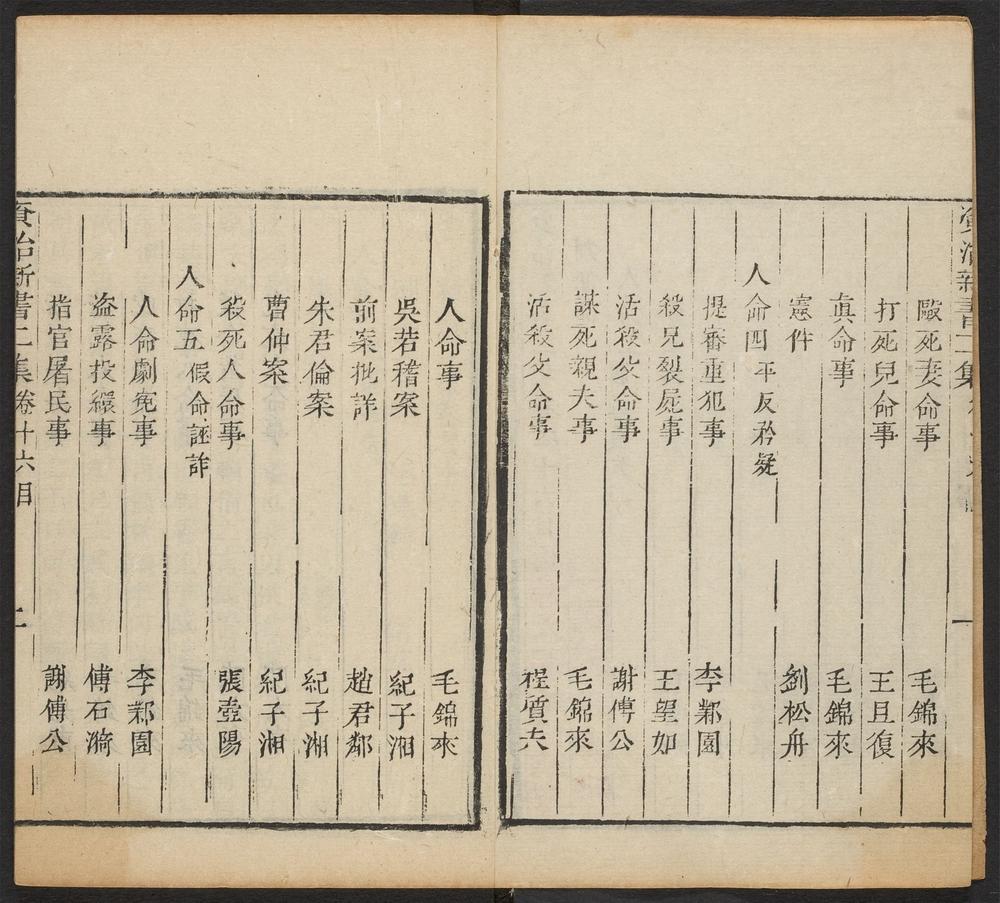 資治新書二集
一
毆死妻命事 毛錦來
打死兒命事 王且復
真命事 毛錦來
憲件 劉松舟
人命四 平反矜疑
提審重犯事 李鄴園
殺兄裂屍事 王望如
活殺父命事 謝傅公
謀死親夫事 毛錦來
活殺父命事 程質夫
人命事 毛錦來
吳若稽案 紀子湘
前案批詳 趙君鄰
朱君倫案 紀子湘
曹仲案 紀子湘
殺死人命事 張壼陽
人命五 假命誣詐
人命劇冤事 李鄴園
盜露投繯事 傅石漪
指官屠民事 謝傅公
資治新書二集卷十六目 二